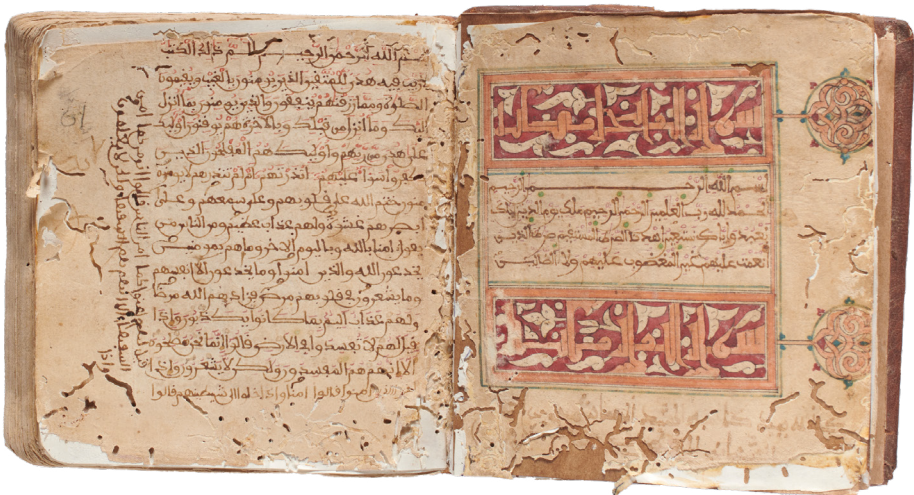 بسم الله الرحمن الرحيم
الحمد لله رب العلمين الرحمن الرحيم ملك يوم الدين إياك
نعبد وإياك نستعين اهدنا الصراط المستقيم صراط الذين
أنعمت عليهم غير المغضوب عليهم ولا الضالين
بسم الله الرحمن الرحيم الم ذلك الكتب
لا ريب فيه هدى للمتقين الذين يومنون بالغيب ويقيمون
الصلوة ومما رزقنهم ينفقون والذين يومنون بما أنزل
إليك وما أنزل من قبلك وبالاخرة هم يوقنون أوليك
على هدى من ربهم وأوليك هم المفلحون إن الذين
كفروا سواء عليهم أنذرتهم أم لم تنذرهم لا يو
منون ختم الله على قلوبهم وعلى سمعهم وعلى
أبصرهم غشوة ولهم عذاب عظيم ومن الناس من
يقول امنا بالله وباليوم الاخر وما هم بمومنين
يخدعون الله والذين امنوا وما يخدعون إلا أنفسهم
وما يشعرون في قلوبهم مرض فزادهم الله مرضا
ولهم عذاب أليم بما كانوا يكذبون وإذا
قيل لهم لا تفسدوا في الأرض قالوا إنما نحن مصلحون
ألا إنهم هم المفسدون ولكن لا يشعرون وإذا
امنوا قالوا امنا وإذا خلوا إلى شيطينهم قالوا
قيل لهم امنوا كما امن الناس قالوا أنومن كما امن
السفهاء ألا إنهم هم السفهاء ولكن لا يعلمون
وإذا